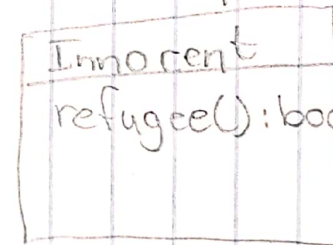 Innocent
refugee():boo